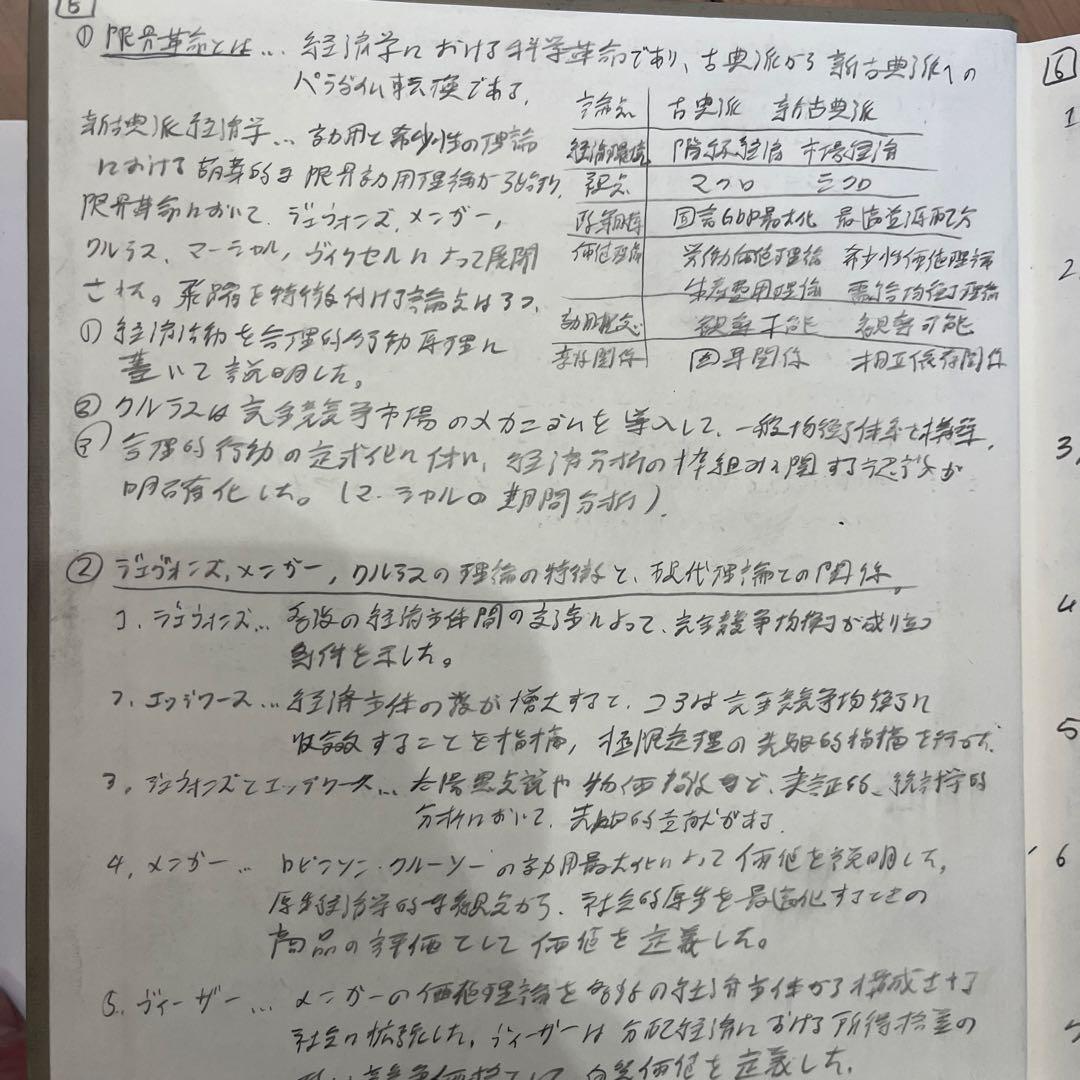 5
① 限界革命とは… 経済学における科学革命であり、古典派から新古典派への
パラダイム転換である。
論点 古典派 新古典派
新古典派経済学… 効用と希少性の理論
経済環境 階級経済 市場経済
における萌芽的な限界効用理論から始まり、
視点 マクロ ミクロ
限界革命において、ジェヴォンズ、メンガー、
国富GDP最大化 最適資源配分
ワルラス、マーシャル、ヴィクセルによって展開
価値理論 労働価値理論 希少性価値理論
生産費用理論 需給均衡理論
された。飛躍を特徴付ける論点は3つ、
効用概念 観察不能 観察可能
① 経済活動を合理的行動原理に
因果関係 相互依存関係
基いて説明した。
② ワルラスは完全競争市場のメカニズムを導入して、一般均衡体系を構築。
③ 合理的行動の定式化に伴い、経済分析の枠組みに関する認識が
明確化した。(マーシャルの期間分析)
② ジェヴォンズ、メンガー、ワルラスの理論の特徴と、現代理論との関係。
1. ジェヴォンズ… 多数の経済主体間の交渉によって、完全競争均衡が成り立つ
条件を示した。
2. エッジワース… 経済主体の数が増大すると、コアは完全競争均衡に
収斂することを指摘、極限定理の先駆的指摘を行った。
3. ジェヴォンズとエッジワース… 太陽黒点説や物価指数など、実証的、統計学的
分析において、先駆的貢献がある。
4. メンガー… ロビンソン・クルーソーの効用最大化によって価値を説明した。
厚生経済学的な観点から、社会的厚生を最適化するときの
商品の評価として価値を定義した。
5. ヴィーザー… メンガーの価値理論を多数の経済主体から構成される
社会に拡張した。ヴィーザーは分配経済における所得格差の
ない競争価格として自然価値を定義した。
6
1
2
3,
4
5
6